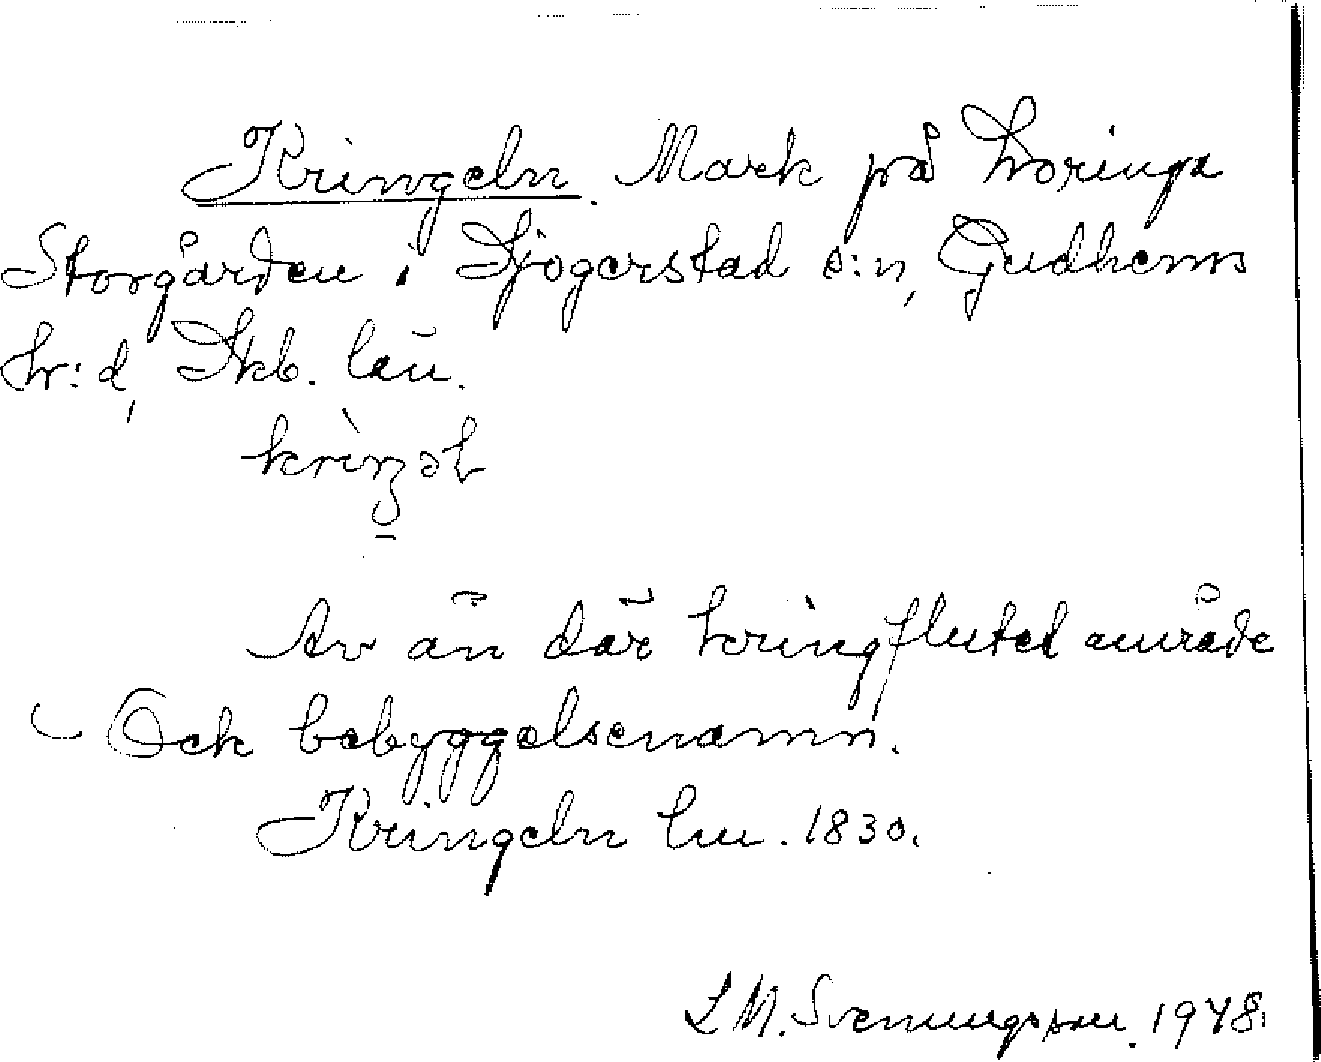 Kringeln. Mark på Horinga
Storgården i Sjogerstad s:n, Gudhems
hr:d, Skb. län.
Av ån där kringflutet område
Ock bebyggelsenamn.
Kringeln hm. 1830.
L M. Svenungsson. 1948.